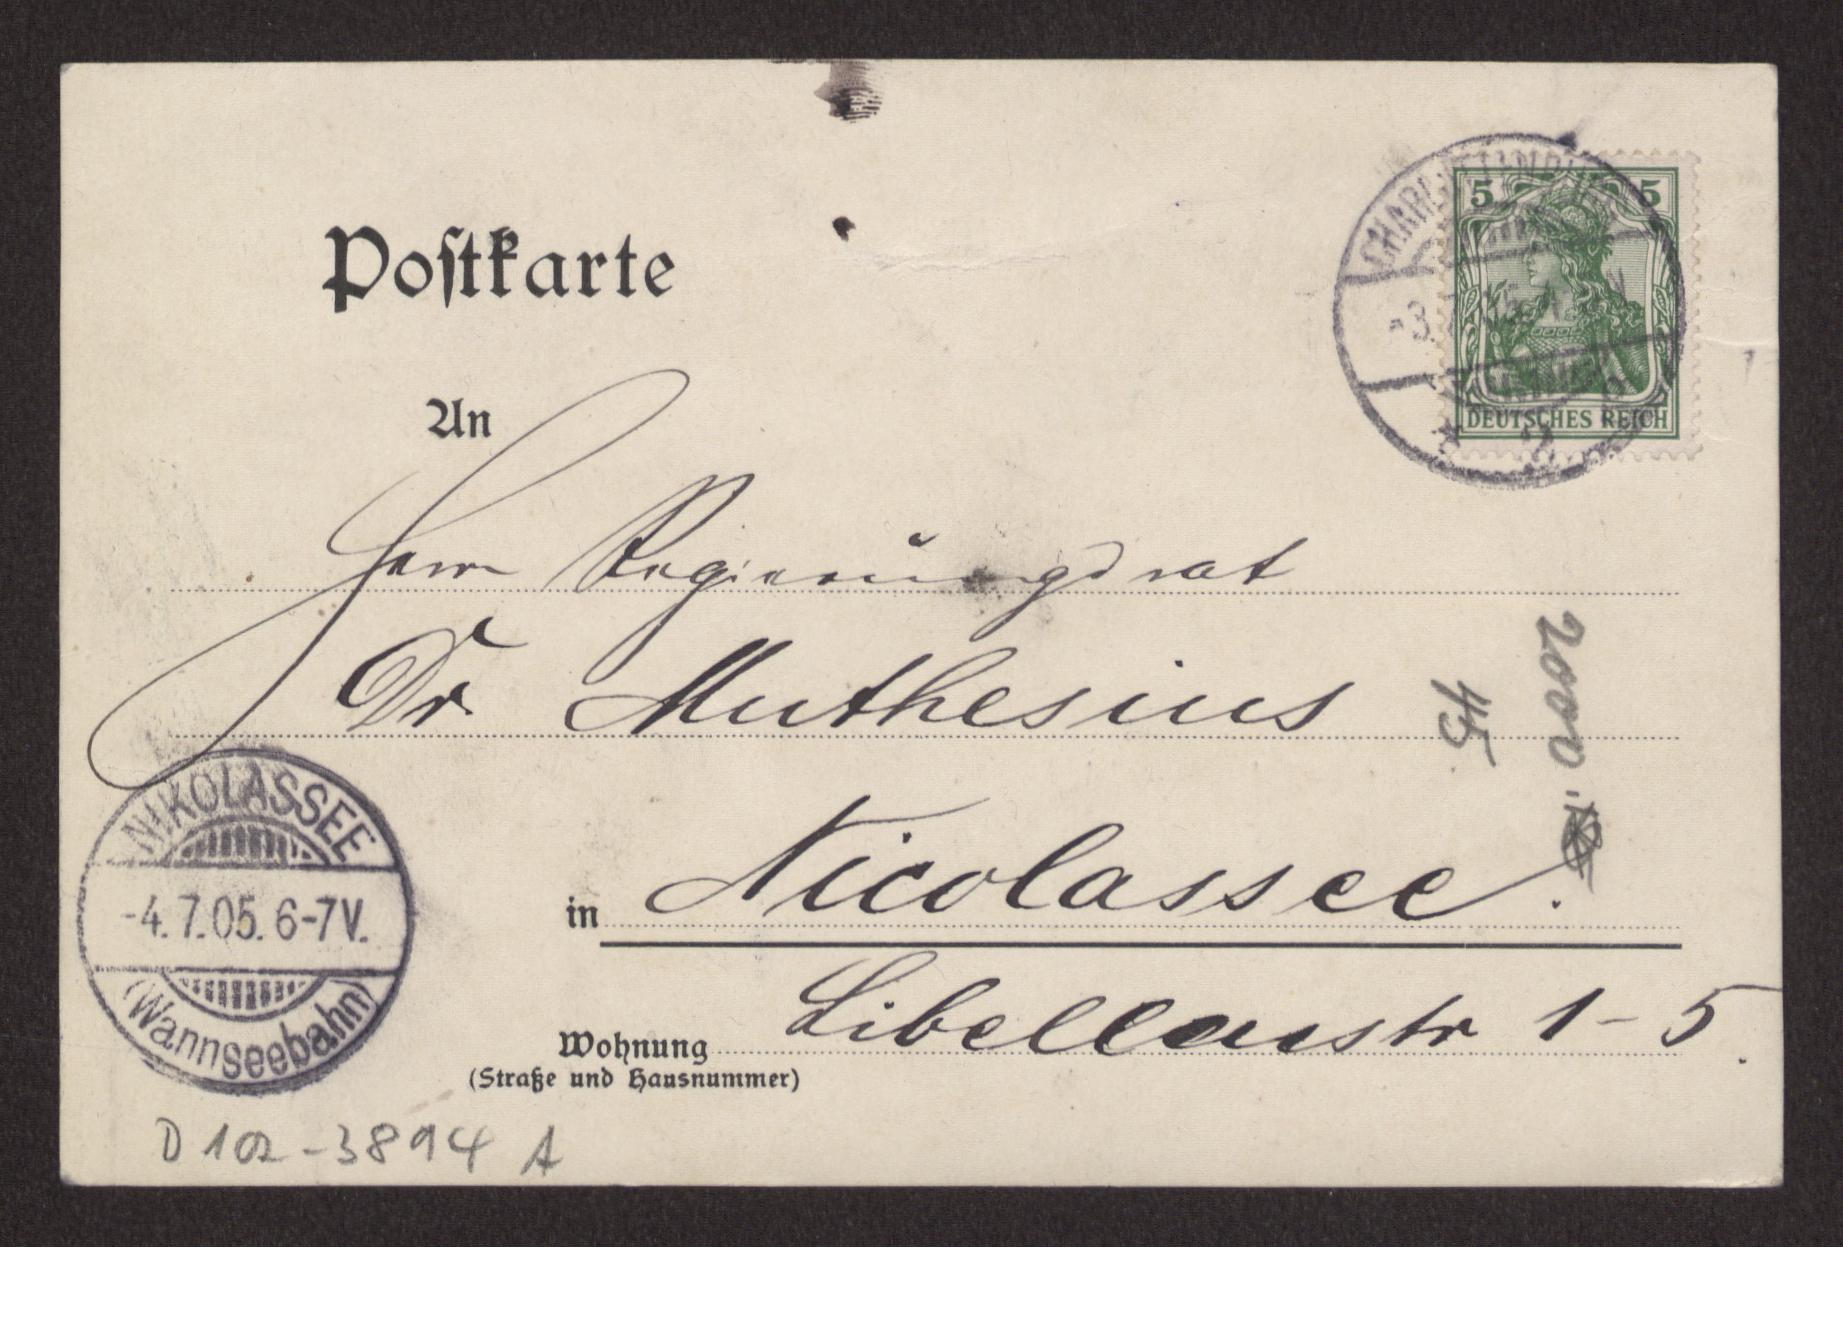 Postkarte
5 5
DEUTSCHES REICH
CHARLOTTENBURG
An
Herrn Regierungsrat
Dr. Muthesius
in Nicolassee.
Wohnung Libellenstr 1-5.
(Straße und Hausnummer)
NIKOLASSEE
-4.7.05. 6-7V.
(Wannseebahn)
2000
45
D 102-3894 A